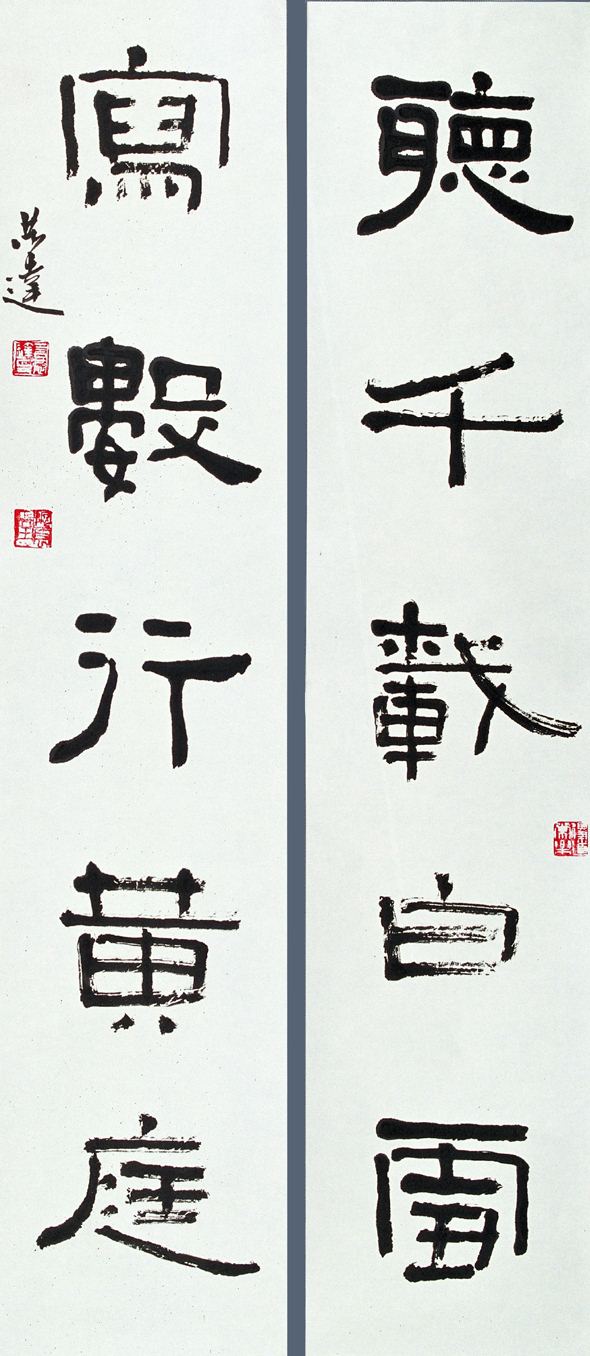 聽千載白雪
寫數行黃庭
達